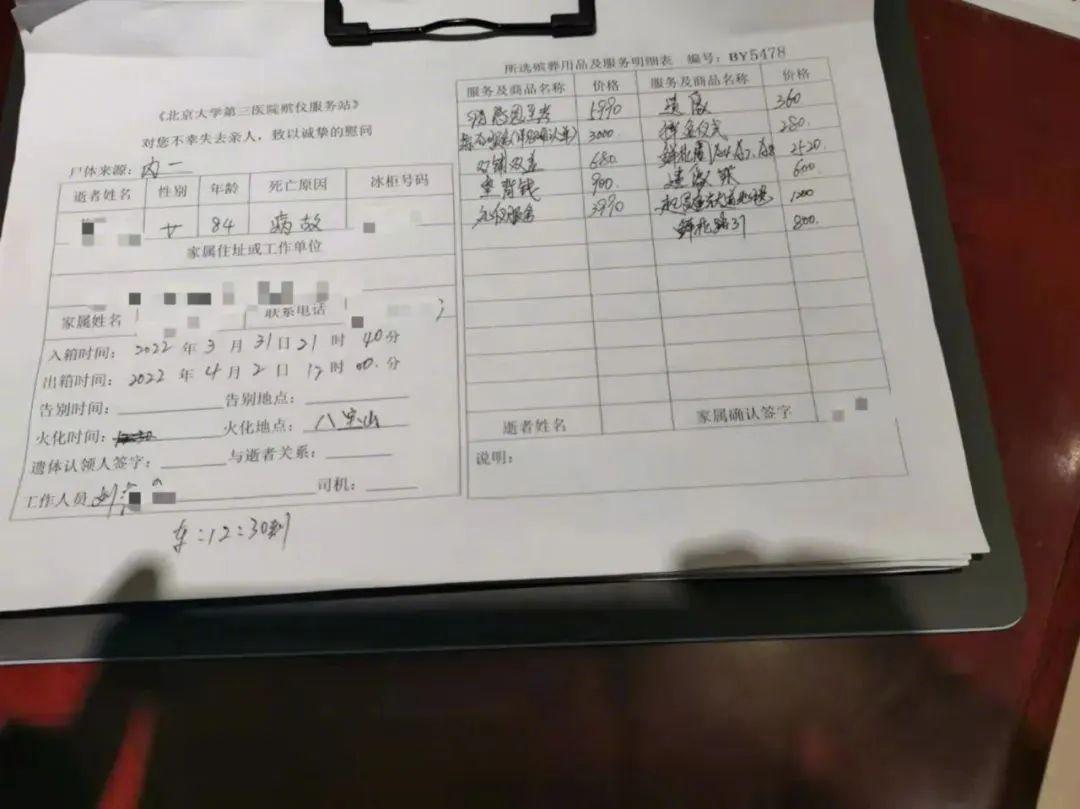 《北京大学第三医院殡仪服务站》
对您不幸失去亲人，致以诚挚的慰问
尸体来源：内一
逝者姓名 性别 年龄 死亡原因 冰柜号码
女 84 病故
家属住址或工作单位
家属姓名 联系电话
入箱时间：2022 年 3 月 31 日 21 时 40 分
出箱时间：2022 年 4 月 2 日 12 时 00 分
告别时间： 告别地点：
火化时间： 火化地点：八宝山
遗体认领人签字： 与逝者关系：
工作人员 刘 司机：
车：12：30到
所选殡葬用品及服务明细表 编号：BY5478
服务及商品名称 价格 服务及商品名称 价格
5990 遗像 360
3000 280
双铺双盖 680 鲜花圈 2520
垫背钱 900 遗像架 600
礼仪服务 3990 1200
鲜花 800
逝者姓名 家属确认签字
说明：